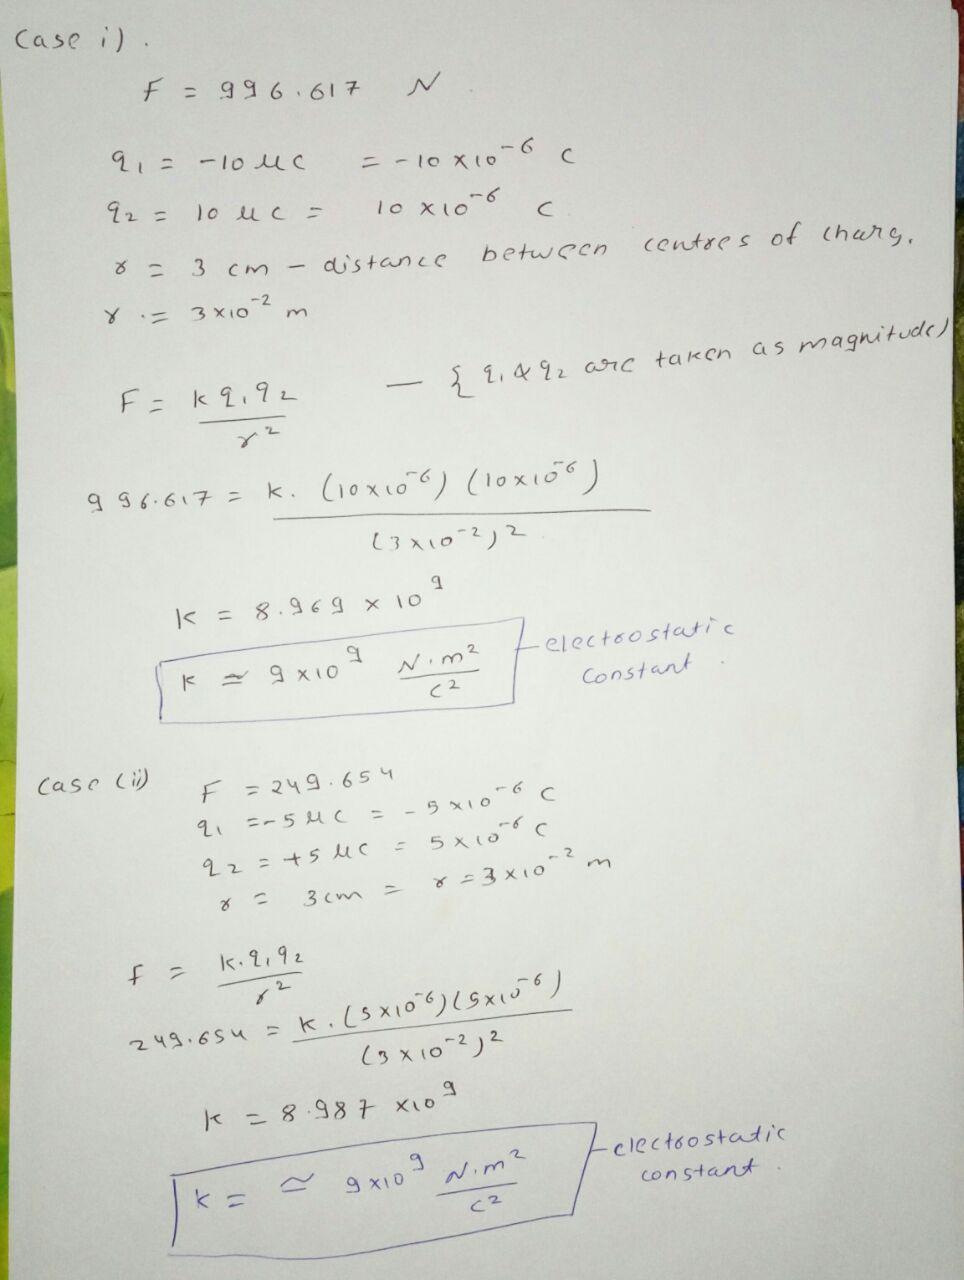 Case i) .
F = 996.617 N
q₁ = -10 μC = -10 x10⁻⁶ C
q₂ = 10 μC = 10 x10⁻⁶ C
r = 3 cm - distance between centres of charg.
r .= 3x10⁻² m
F = k q₁q₂ / r² — { q₁ & q₂ are taken as magnitude)
996.617 = k. (10x10⁻⁶) (10x10⁻⁶) / (3x10⁻²)²
k = 8.969 x 10⁹
k ≃ 9x10⁹ N.m²/C² - electrostatic
constant .
Case (ii) F = 249.654
q₁ = -5 μC = -5x10⁻⁶ C
q₂ = +5 μC = 5x10⁻⁶ C
r = 3cm = r = 3x10⁻² m
F = k.q₁q₂ / r²
249.654 = k. (5x10⁻⁶)(5x10⁻⁶) / (3x10⁻²)²
k = 8.987 x10⁹
k = ≃ 9x10⁹ N.m²/C² - electrostatic
constant .